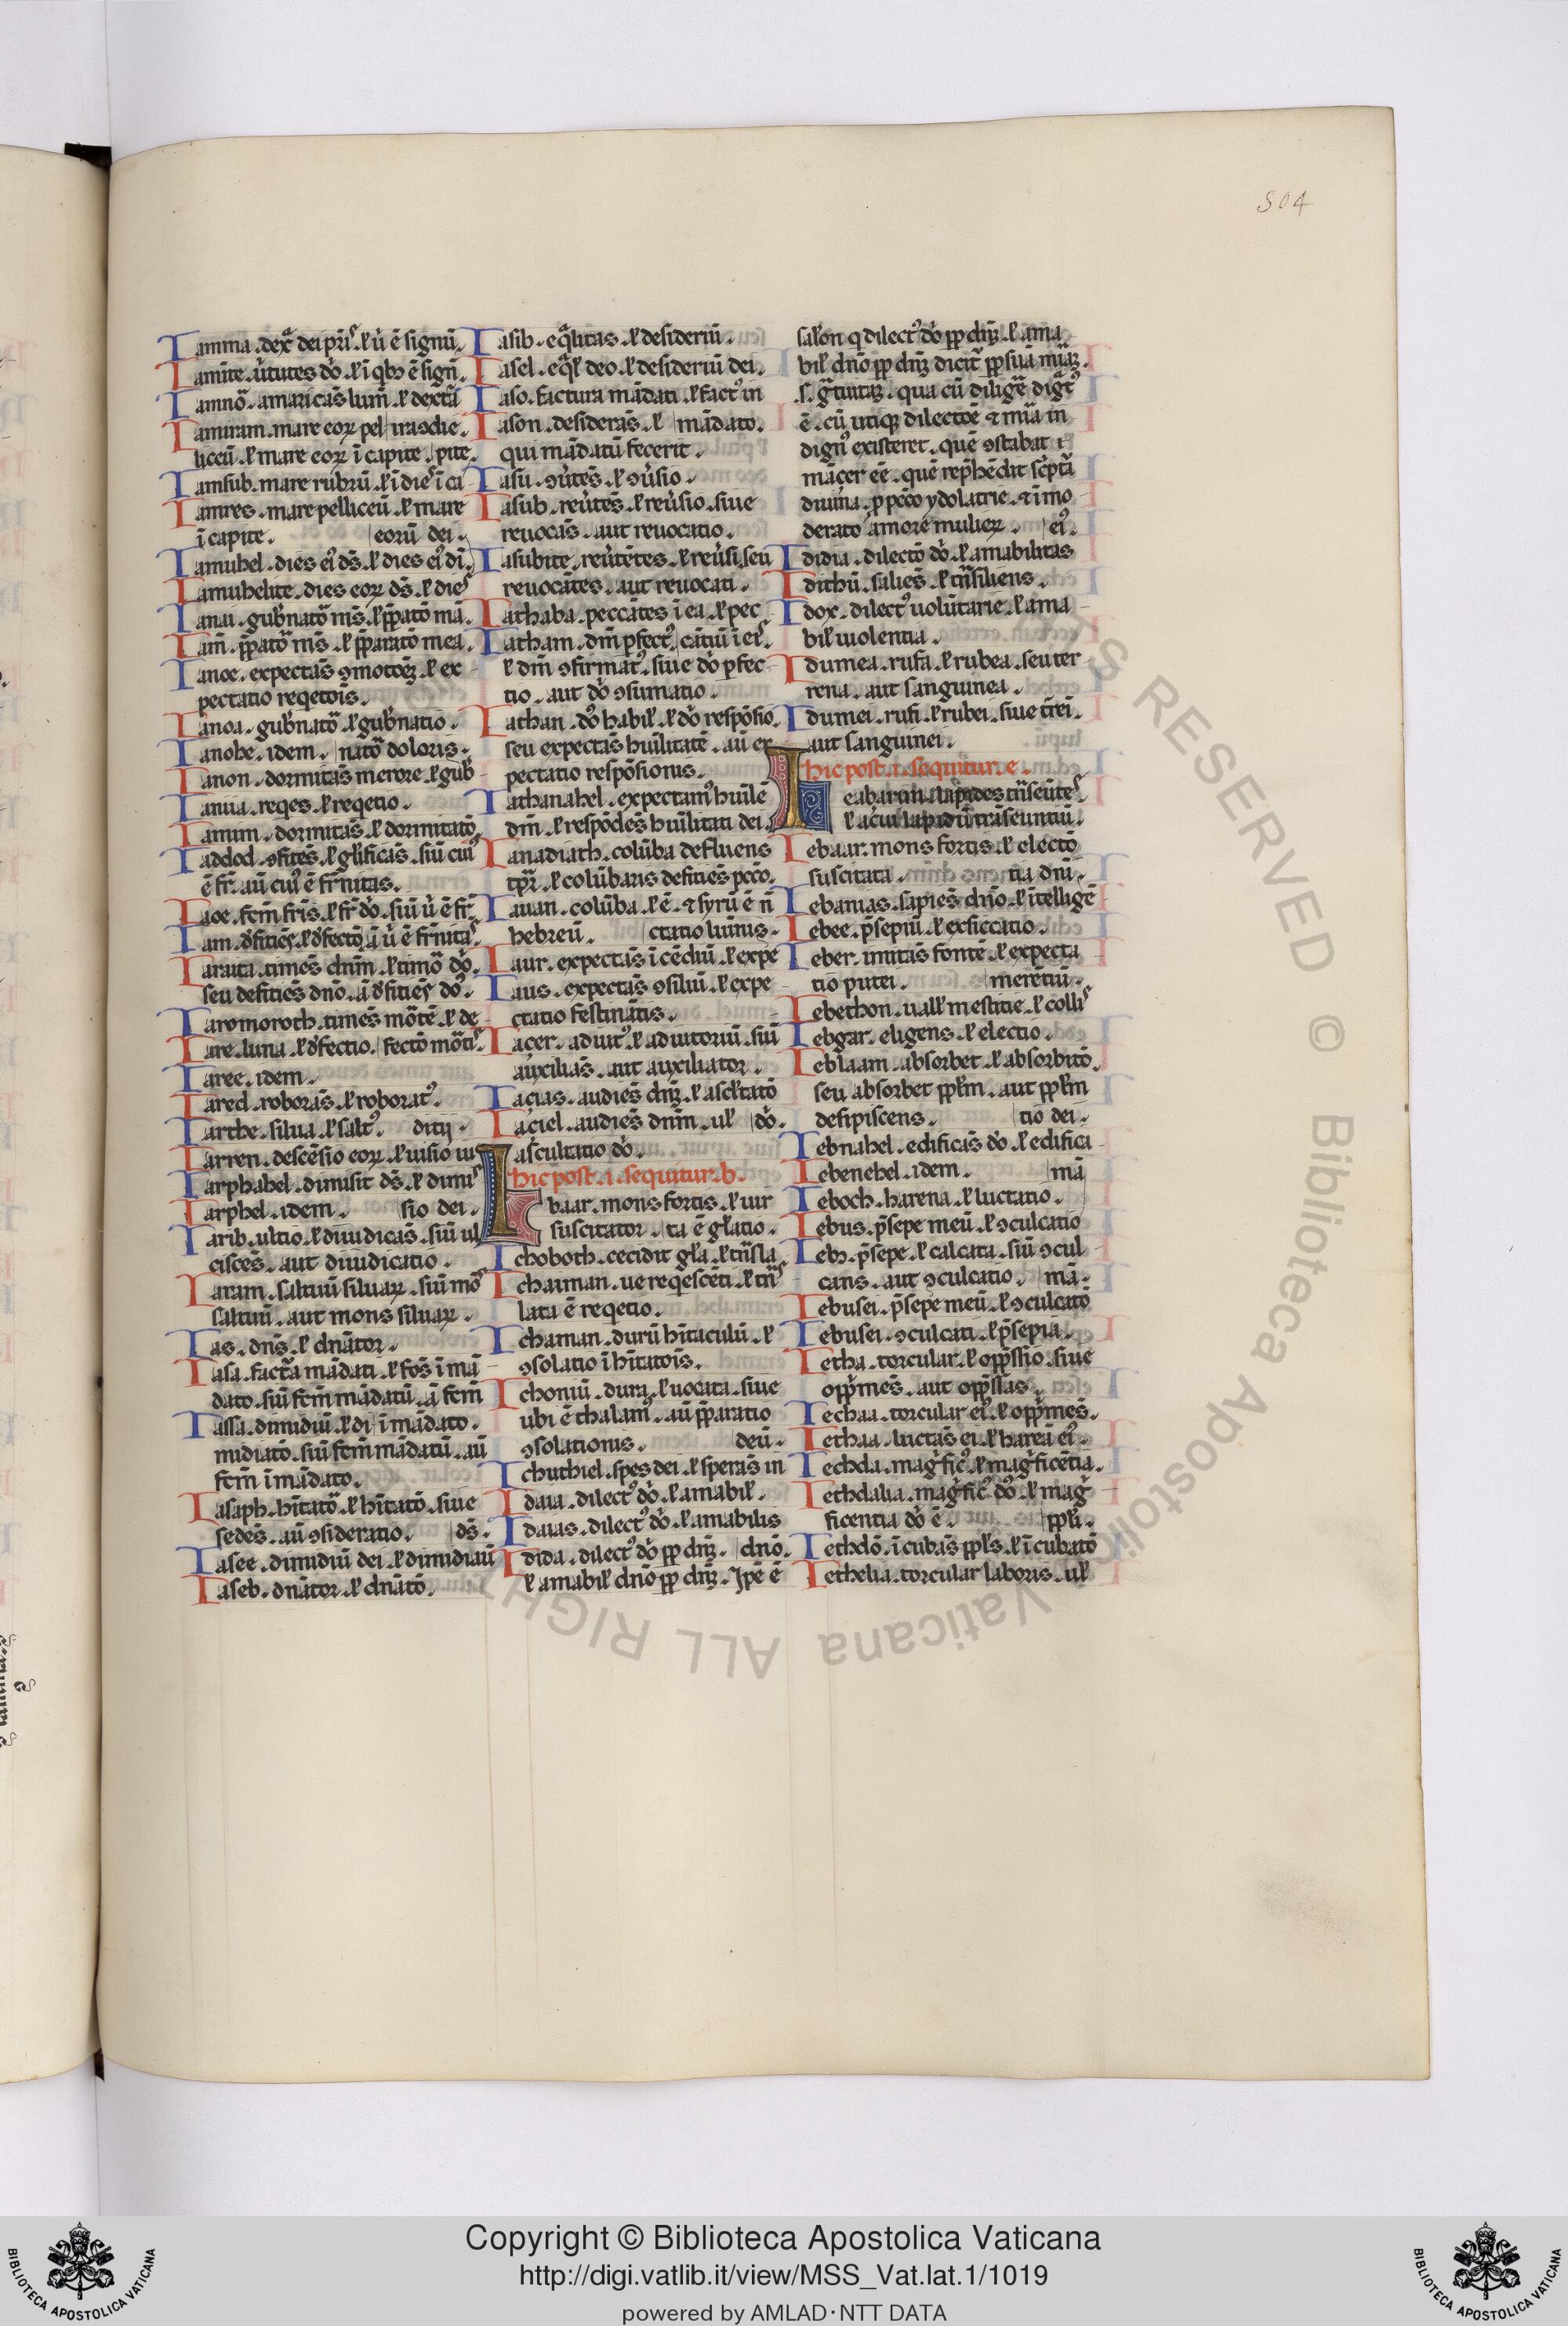 504
Iamma . dext̃ dei pr̃is . ł ũ ẽ signũ .
Iamite . ũtutes dõ . ł ĩ qbꝫ ẽ sign̄ .
Iamnõ . amaricãs lum̃ . ł dextã
Iamram . mare eoꝝ pel
liceũ . ł mare eoꝝ ĩ capite . | pite .
Iamsub . mare rubrũ . ł ĩ dies ĩ ca
Iamres . mare pelliceũ . ł mare
ĩ capite . | eorũ dei .
Iamuhel . dies eiꝰ ds̃ . ł dies eiꝰ di .
Iamuhelite . dies eoꝝ ds̃ . ł dies
Ianai . gub̃natõ ms̃ .
Ianoe . expectãs ꝯmotõeꝫ . ł ex
pectatio reqetõis .
Ianoa . gub̃natõ . ł gub̃natio .
Ianohe . idem . | natõ doloris .
Ianon . dormitãs merore . ł gub̃
Ianua . reqes . ł reqetio .
Ianum . dormitãs . ł dormitatõ
ẽ fr̃ . aũ cuiꝰ ẽ fr̃nitas .
Iaraita . timẽs dnm̃ . ł timõ dõ .
seu deficiẽs dnõ .
Iaromoroth . timẽs mõtẽ . ł de
Iare . luna . ł defectio . | fectõ mõtis .
Iaree . idem .
Iared . roborãs . ł roboratꝰ .
Iarthe . silua . ł saltꝰ . ditij .
Iarren . descẽsio eoꝝ . ł uisio iu
Iarphahel . dimisit ds̃ . ł dimis
Iarphel . idem . sio dei .
Iarib . ultio . ł diiudicãs . siũ ul
ciscẽs . aut diiudicatio .
Iaram . saltuũ siluaꝝ . siũ mõs
saltuũ . aut mons siluaꝝ .
Ias . dns̃ . ł dnãtor .
Iasa . factã mãdati . ł fcs̃ ĩ mã
dato . siũ fcm̃ mãdatũ . ã fcm̃
Iassa . dimidiũ . ł di | ĩ mãdato .
midiatõ . siũ fcm̃ mãdatũ . aũ
fcm̃ ĩ mãdato .
Iasaph . hĩtatõ . ł hĩtatõ . siue
sedes . aũ ꝯsideratio . | ds̃ .
Iasee . dimidiũ dei . ł dimidiaũ
Iaseb . dnãtor . ł dnãtõ .
Iasib . eq̃litas . ł desideriũ .
Iasel . eq̃l deo . ł desideriũ dei .
Iaso . factura mãdati . ł factꝰ in
Iason . desiderãs . ł | mãdato .
qui mãdatũ fecerit .
Iasu . ꝯũtẽs . ł ꝯũsio .
Iasub . reũtẽs . ł reũsio . siue
reuocãs . aut reuocatio .
Iasubite . reũtẽtes . ł reũsi . seu
reuocãtes . aut reuocati .
Iathaba . peccãtes ĩ ea . ł pec
Iatham . dnm̃ ꝑfectꝰ | cãtiũ ĩ eis .
ł dnm̃ ꝯfirmãtꝰ . siue dõ ꝑfec
tio . aut dõ ꝯsumatio .
Iathan . dõ habił . ł dõ respõsio .
seu expectãs huĩlitatẽ . aũ ex
pectatio respõsionis .
Iathanahel . expectamꝰ huĩlẽ
dnm̃ . ł respõdẽs huĩlitati dei .
Ianadiath . colũba defluens
tpr̃ . ł colũbaris deficiẽs pccõ .
Iauan . colũba . ł ẽ . ⁊ syrũ ẽ ñ
hebreũ . | ctatio luĩnis .
Iaur . expectãs ĩcẽdiũ . ł expe
Iaus . expectãs ꝯsiliũ . ł expe
ctatio festinãtis .
Iacer . adiutꝰ . ł adiutoriũ . siũ
auxiliãs . aut auxiliator .
Iacias . audiẽs dnꝫ . ł ascltatõ
Iaciel . audiẽs dnm̃ . uł | dõ .
ascultatio dõ .
hic post . i . sequitur . b .
Ibaar . mons fortis . ł uir
suscitator . | ta ẽ gła
Ichoboth . cecidit gła . ł tñsla
Ichaiman . ue reqescẽti . ł tñs
lata ẽ reqetio .
Ichaman . durũ hĩtaculũ . ł
ꝯsolatio ĩhĩtatõis .
Ichoniũ . dura . ł uocata . siue
ubi ẽ thalamꝰ . aũ p̃paratio
ꝯsolationis . deũ .
Ichuthiel . spes dei . ł sperãs in
Idaia . dilectꝰ dõ . ł amabił .
Idaias . dilectꝰ dõ . ł amabilis
Idida . dilectꝰ dõ ꝓp dnꝫ . | dnõ .
ł amabił dnõ ꝓp dnꝫ . Ipẽ ẽ
salõn q dilectꝰ dõ ꝓp dnꝫ . ł ama
bił dnõ ꝓp dnꝫ dicit̃ ꝓp suã mĩãꝫ .
.s. g̃tuitaꝫ . qua cũ diligẽ dig̃tꝰ
ẽ . cũ utiqꝫ dilectõe ⁊ mĩa in
dignꝰ existeret . quẽ ꝯstabat i
mãcer eẽ . quẽ rep̃hẽdit sc̃ptã
diuina . ꝓ pccõ ydolatrie . ⁊ ĩmo
derato amore mulieꝝ . | eiꝰ .
Ididia . dilectõ dõ . ł amabilitas
Idithũ . saliẽs . ł tñsiliens .
Idox . dilectꝰ uolũtarie . ł ama
bił uiolentia .
Idumea . rufa . ł rubea . seu ter
rena . aut sanguinea .
Idumei . rufi . ł rubei . siue tr̃ei .
aut sanguinei .
hic post . i . sequitur . e .
Ieabarim . lapides tñseũtes .
ł acui lapidũ trãseuntiũ .
Iebaar . mons fortis . ł electõ
suscitata . | tia dnĩ .
Iebanias . sapiẽs dnõ . ł ĩtelligẽ
Iebee . p̃sepiũ . ł exsiccatio .
Ieber . imitãs fontẽ . ł expecta
tio putei . | merẽtiũ .
Iebethon . uall̃ mestitie . ł collis
Iebgar . eligens . ł electio .
Ieblaam . absorbet . ł absorbitõ .
seu absorbet ppłm . aut ppłm
desipiscens . | tio dei .
Iebnahel . edificãs dõ . ł edifica
Iebenehel . idem . | mã
Ieboch . harena . ł luctatio .
Iebus . p̃sepe meũ . ł ꝯculcatio
Iebꝫ . p̃sepe . ł calcata . siũ ꝯcul
cans . aut ꝯculcatio . | mã .
Iebusei . p̃sepe meũ . ł ꝯculcatõ
Iebusei . ꝯculcati . ł p̃sepia .
Ietha . torcular . ł opp̃ssio . siue
opp̃mẽs . aut opp̃ssas .
Iechaa . torcular eiꝰ . ł opp̃mẽs .
Iethaa . luctãs ei . ł harẽa eiꝰ .
Iechda . mag̃ficꝰ . ł mag̃ficẽtia .
Iethdalia . mag̃ficꝰ dõ . ł mag̃
ficentia dõ ẽ . | ppłi .
Iethdõ . ĩcubãs ppłs . ł ĩcubatõ
Iethelia . torcular laboris . uł
ALL RIGHTS RESERVED © Biblioteca Apostolica Vaticana
Copyright © Biblioteca Apostolica Vaticana
http://digi.vatlib.it/view/MSS_Vat.lat.1/1019
powered by AMLAD·NTT DATA
BIBLIOTECA APOSTOLICA VATICANA
BIBLIOTECA APOSTOLICA VATICANA